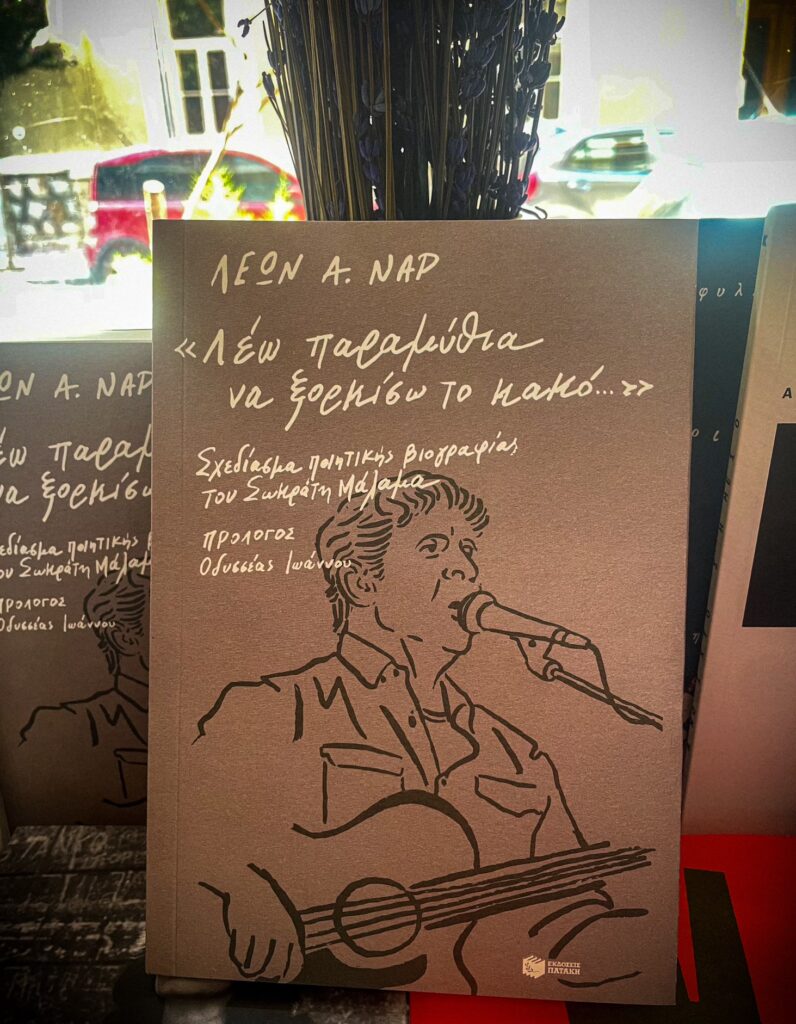 ΛΕΩΝ Α. ΝΑΡ
«Λέω παραμύθια
να ξορκίσω το κακό...»
Σχεδίασμα ποιητικής βιογραφίας
του Σωκράτη Μάλαμα
ΠΡΟΛΟΓΟΣ
Οδυσσέας Ιωάννου
ΕΚΔΟΣΕΙΣ
ΠΑΤΑΚΗ
ΩΝ Α. ΝΑΡ
έω παραμ
να ξορκίσω
εδίασμα ποιητικής β
ου Σωκράτη Μάλαμ
ΡΟΛΟΓΟΣ
Οδυσσέας Ιωάννου
φυλ
Α